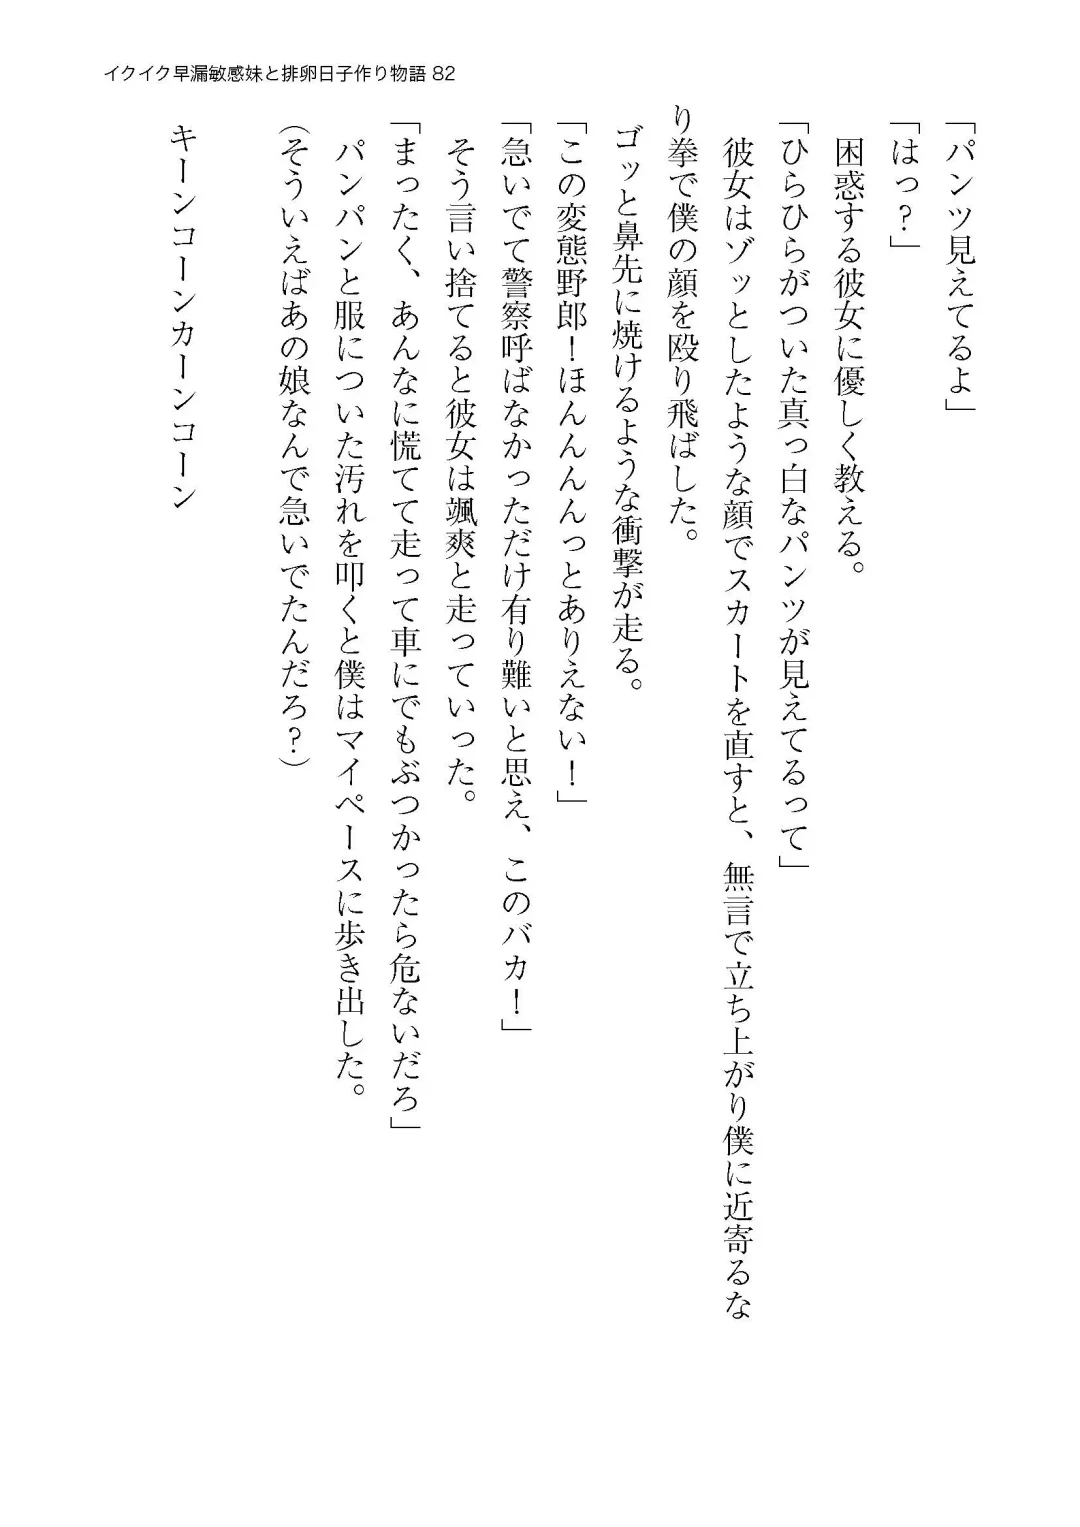 イクイク早漏敏感妹と排卵日子作り物語 82
「パンツ見えてるよ」
「はっ?」
困惑する彼女に優しく教える。
「ひらひらがついた真っ白なパンツが見えてるって」
彼女はゾッとしたような顔でスカートを直すと、無言で立ち上がり僕に近寄るな
り拳で僕の顔を殴り飛ばした。
ゴッと鼻先に焼けるような衝撃が走る。
「この変態野郎！ほんんんんっとありえない！」
「急いでて警察呼ばなかっただけ有り難いと思え、このバカ！」
そう言い捨てると彼女は颯爽と走っていった。
「まったく、あんなに慌てて走って車にでもぶつかったら危ないだろ」
パンパンと服についた汚れを叩くと僕はマイペースに歩き出した。
(そういえばあの娘なんで急いでたんだろ?)
キーンコーンカーンコーン